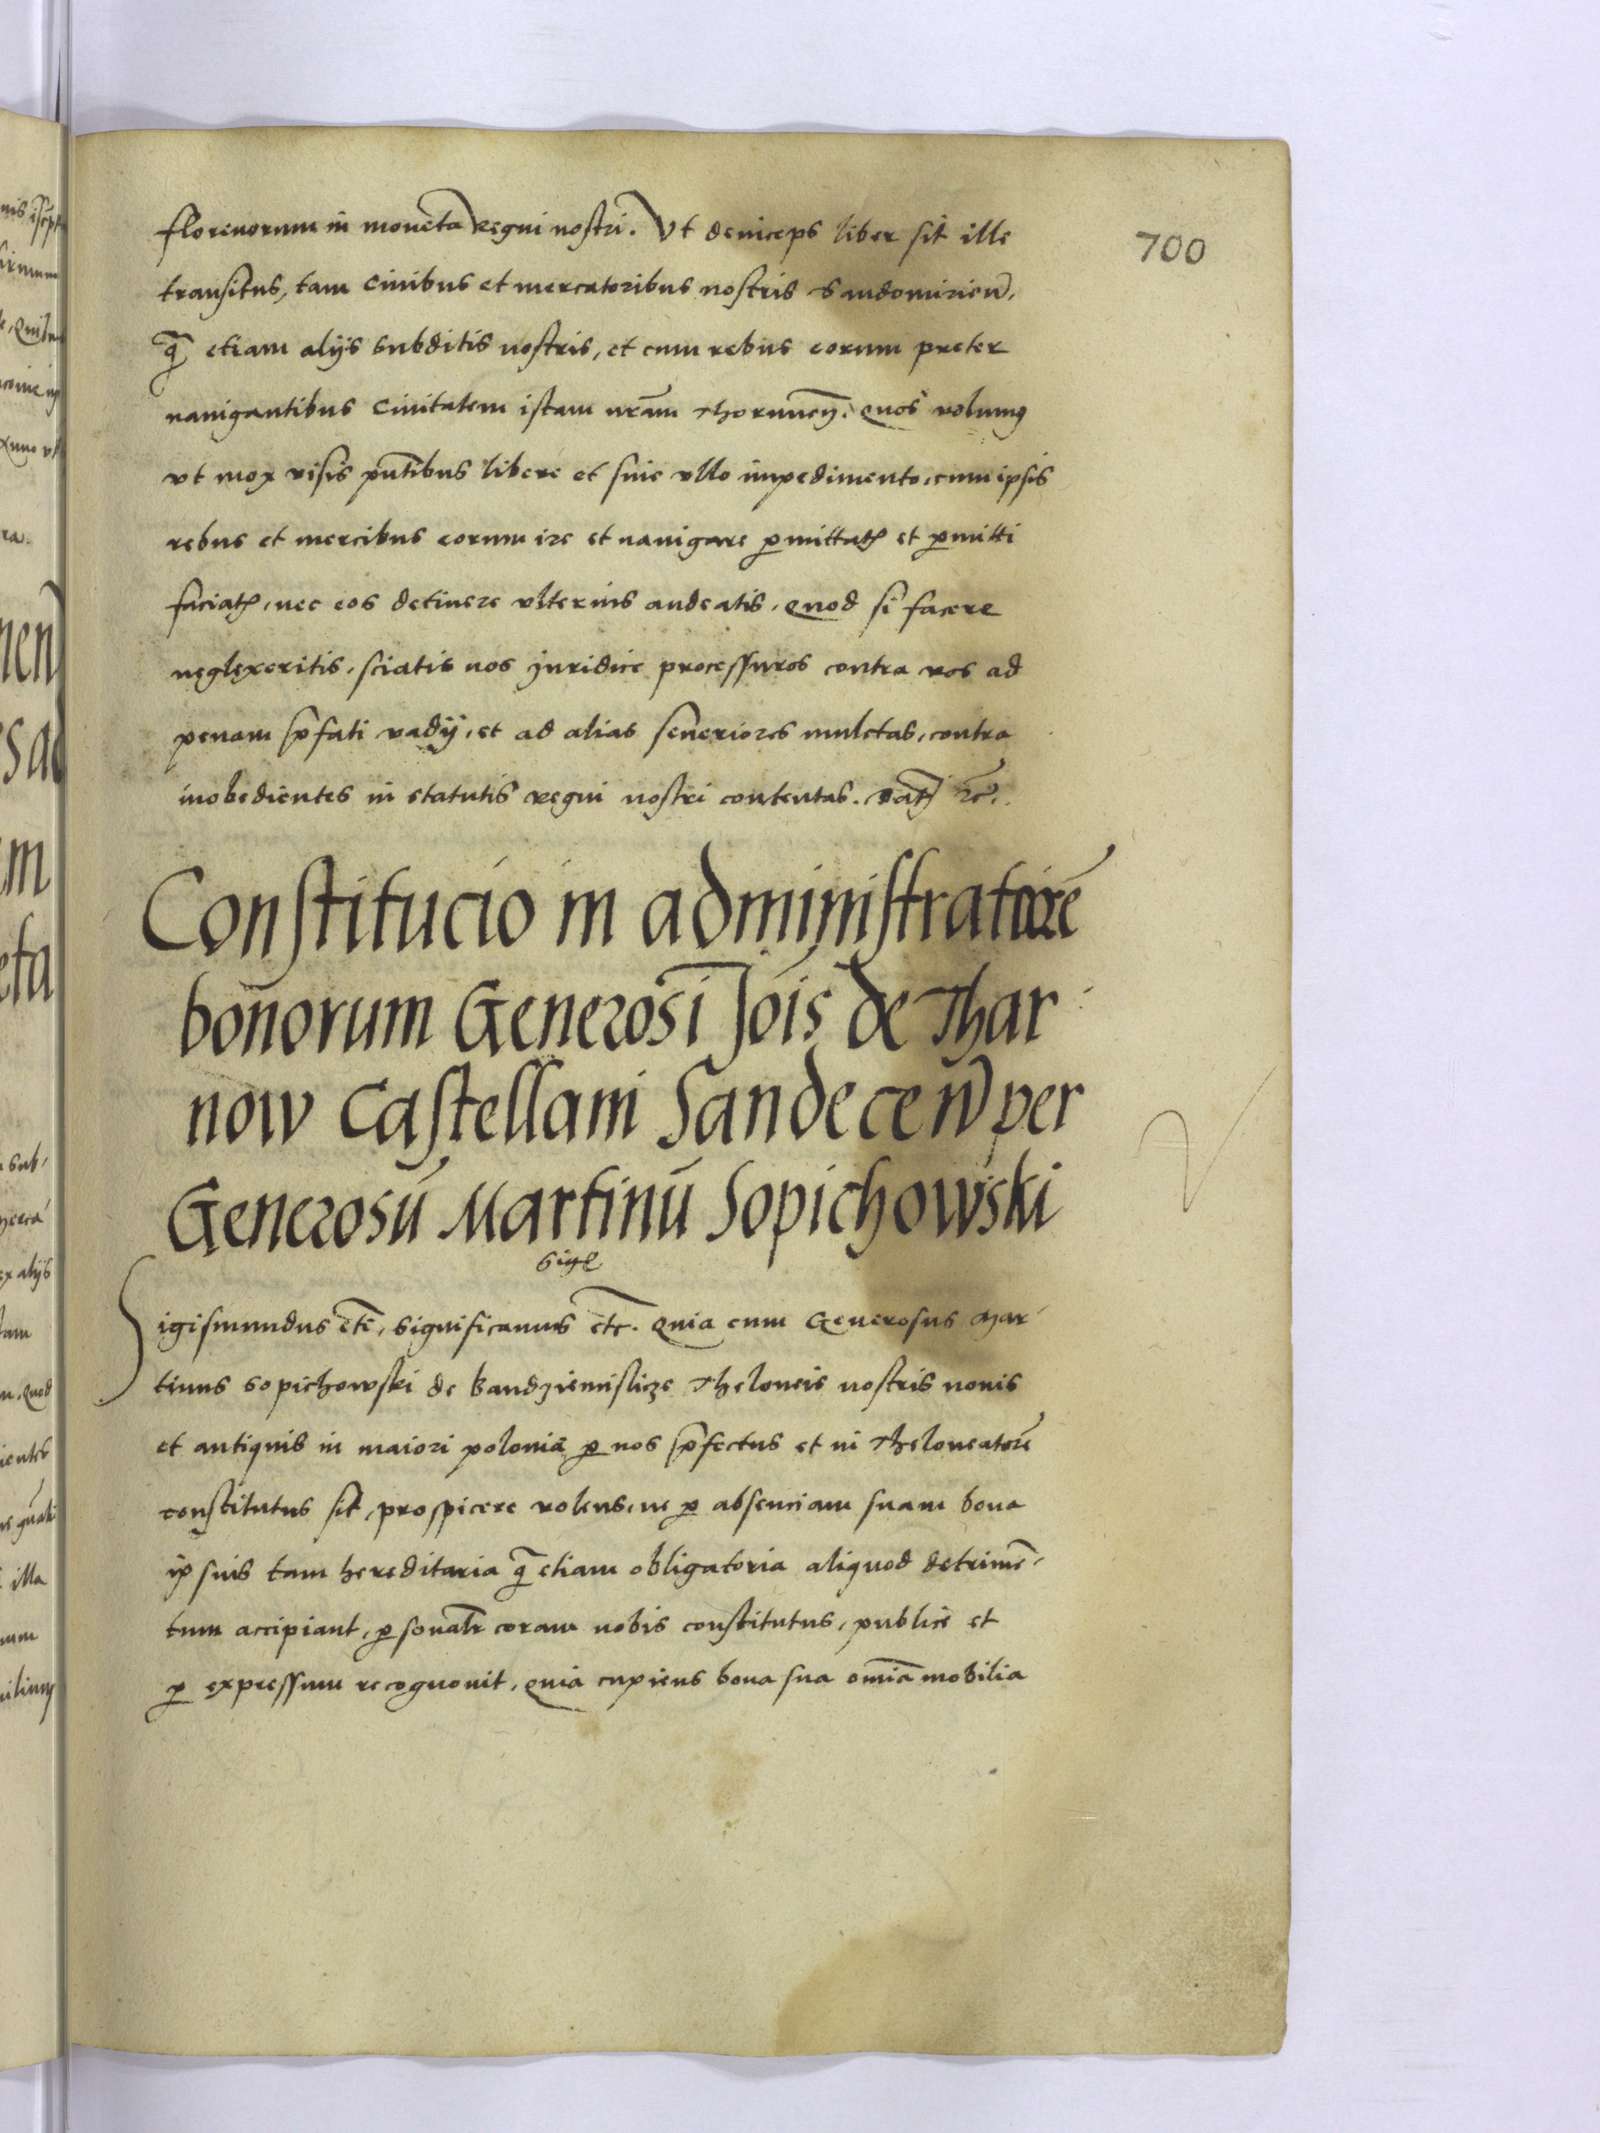 700
florenorum in moneta Regni nostri. Ut deinceps liber sit ille
transitus, tam Civibus et mercatoribus nostris Sandomirien̄,
q̄ etiam alijs subditis nostris, et cum rebus eorum preter
navigantibus Civitatem istam nrām Thorunen̄. Quos volumus
ut mox visis pn̄tibus libere et sine ullo impedimento, cum ipsis
rebus et mercibus eorum ire et navigare p̱mittatꝭ et p̱mitti
faciatꝭ, nec eos detinere ulterius audeatis, Quod si facere
neglexeritis, sciatis nos juridice processuros contra vos ad
penam p̄fati vadij, et ad alias severiores mulctas, contra
inobedientes in statutis Regni nostri contentas. Datꝭ ꝛc̄.
Constitucio in administratorē
bonorum Generosi Joīs de Thar
now Castellani Sandecen̄ per
Generosū Martinū Sopichowski
Sigꝭ
Sigismundus etc̄, Significamus etc̄. Quia cum Generosus Mar
tinus Sopichowski de Bandziemislicze Theloneis nostris novis
et antiquis in maiori polonia p̱ nos p̄fectus et in Theloneatorē
constitutus sit, prospicere volens, ne p̱ absenciam suam bona
ipsius tam hereditaria q̄ etiam obligatoria aliquod detrimē
tum accipiant, p̱sonalr̄ coram nobis constitutus, publice et
p̱ expressum recognovit, Quia cupiens bona sua omīa mobilia